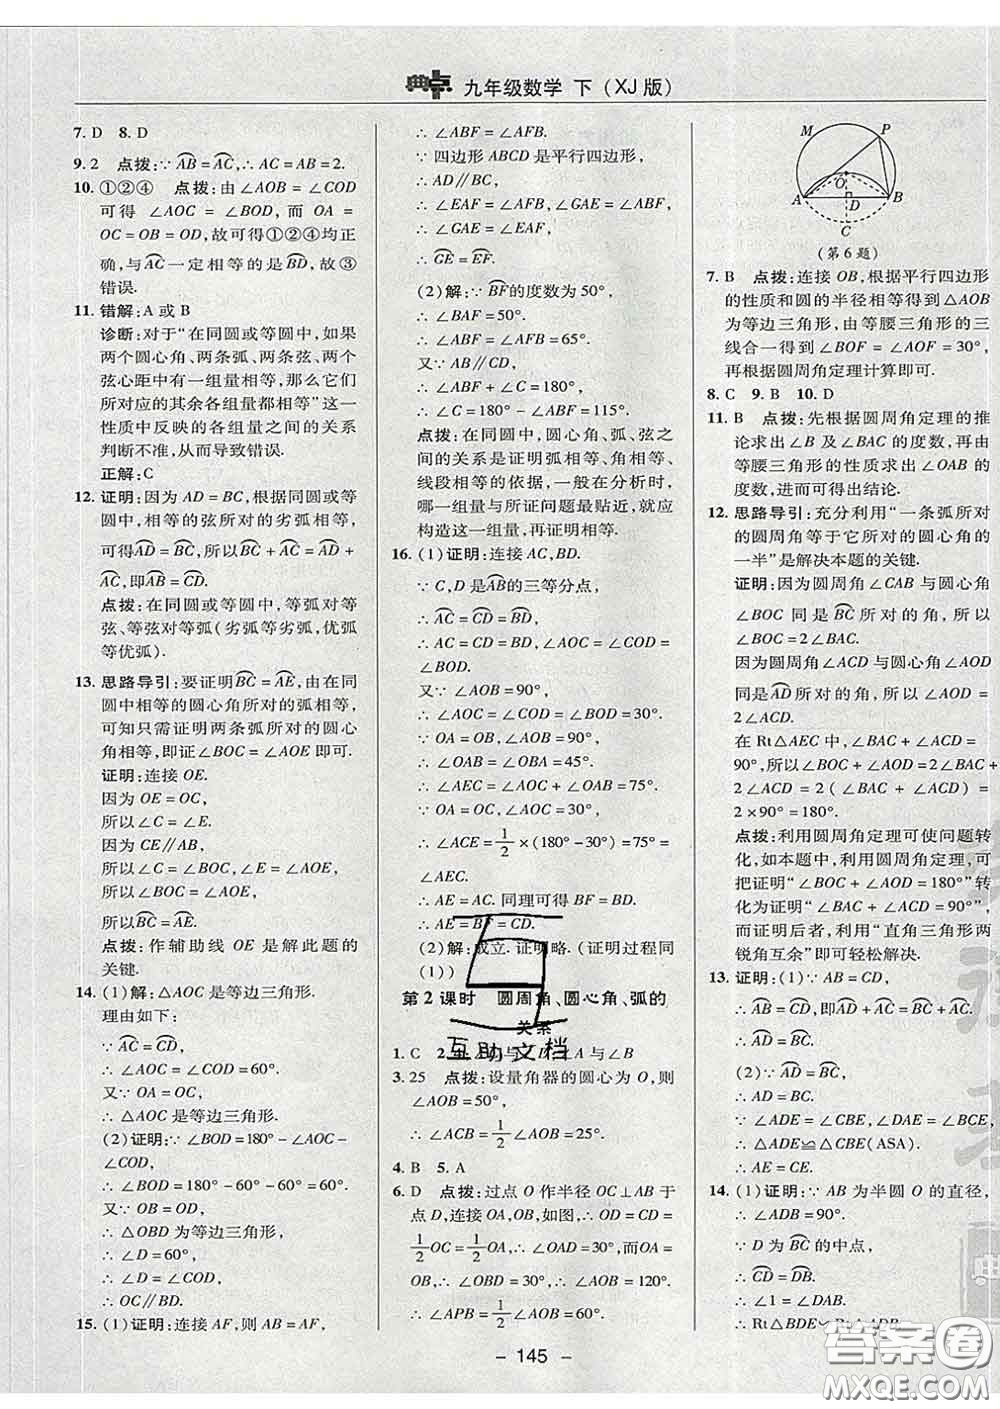 典点 九年级数学 下(XJ版)
7. D 8. D
9. 2 点拨:∵AB=AC,∴AC=AB=2.
10. ①②④ 点拨:由∠AOB=∠COD
可得 ∠AOC=∠BOD,而 OA=
OC=OB=OD,故可得①②④均正
确,与AC一定相等的是BD,故③
错误.
11. 错解:A 或 B
诊断:对于“在同圆或等圆中,如果
两个圆心角、两条弧、两条弦、两个
弦心距中有一组量相等,那么它们
所对应的其余各组量都相等”这一
性质中反映的各组量之间的关系
判断不准,从而导致错误.
正解:C
12. 证明:因为 AD=BC,根据同圆或等
圆中,相等的弦所对的劣弧相等,
可得AD=BC,所以BC+AC=AD+
AC,即AB=CD.
点拨:在同圆或等圆中,等弧对等
弦、等弦对等弧(劣弧等劣弧,优弧
等优弧).
13. 思路导引:要证明BC=AE,由在同
圆中相等的圆心角所对的弧相等,
可知只需证明两条弧所对的圆心
角相等,即证∠BOC=∠AOE 即可.
证明:连接 OE.
因为 OE=OC,
所以∠C=∠E.
因为 CE∥AB,
所以∠C=∠BOC,∠E=∠AOE,
所以∠BOC=∠AOE,
所以BC=AE.
点拨:作辅助线 OE 是解此题的
关键.
14. (1)解:△AOC是等边三角形.
理由如下:
∵AC=CD,
∴∠AOC=∠COD=60°.
又∵OA=OC,
∴△AOC 是等边三角形.
(2)证明:∵∠BOD=180°-∠AOC-
∠COD,
∴∠BOD=180°-60°-60°=60°.
又∵OB=OD,
∴△OBD 为等边三角形,
∴∠D=60°,
∴∠D=∠COD,
∴OC∥BD.
15. (1)证明:连接 AF,则 AB=AF,
∴∠ABF=∠AFB.
∵四边形 ABCD 是平行四边形,
∴AD∥BC,
∴∠EAF=∠AFB,∠GAE=∠ABF,
∴∠GAE=∠EAF,
∴GE=EF.
(2)解:∵BF的度数为50°,
∴∠BAF=50°.
∴∠ABF=∠AFB=65°.
又∵AB∥CD,
∴∠ABF+∠C=180°,
∴∠C=180°-∠ABF=115°.
点拨:在同圆中,圆心角、弧、弦之
间的关系是证明弧相等、角相等、
线段相等的依据,一般在分析时,
哪一组量与所证问题最贴近,就应
构造这一组量,再证明相等.
16. (1)证明:连接 AC,BD.
∵C,D 是AB的三等分点,
∴AC=CD=BD,
∴AC=CD=BD,∠AOC=∠COD=
∠BOD.
又∵∠AOB=90°,
∴∠AOC=∠COD=∠BOD=30°.
∵OA=OB,∠AOB=90°,
∴∠OAB=∠OBA=45°.
∴∠AEC=∠AOC+∠OAB=75°.
∵OA=OC,∠AOC=30°,
∴∠ACE=1/2×(180°-30°)=75°=
∠AEC.
∴AE=AC.同理可得 BF=BD.
∴AE=BF=CD.
(2)解:成立.证明略.(证明过程同
(1))
第2课时 圆周角、圆心角、弧的
关系
互助文档
1. C 2. ∠C与∠D,∠A 与∠B
3. 25 点拨:设量角器的圆心为 O,则
∠AOB=50°,
∴∠ACB=1/2∠AOB=25°.
4. B 5. A
6. D 点拨:过点 O 作半径 OC⊥AB 于
点 D,连接 OA,OB,如图,∴OD=CD=
1/2OC=1/2OA,∴∠OAD=30°,而OA=
OB,∴∠OBD=30°,∴∠AOB=120°.
∴∠APB=1/2∠AOB=60°.
M P O A D B C
(第6题)
7. B 点拨:连接 OB,根据平行四边形
的性质和圆的半径相等得到△AOB
为等边三角形,由等腰三角形的三
线合一得到∠BOF=∠AOF=30°,
再根据圆周角定理计算即可.
8. C 9. B 10. D
11. B 点拨:先根据圆周角定理的推
论求出∠B 及∠BAC的度数,再由
等腰三角形的性质求出∠OAB 的
度数,进而可得出结论.
12. 思路导引:充分利用“一条弧所对
的圆周角等于它所对的圆心角的
一半”是解决本题的关键.
证明:因为圆周角∠CAB 与圆心角
∠BOC 同是BC所对的角,所以
∠BOC=2∠BAC.
因为圆周角∠ACD 与圆心角∠AOD
同是AD所对的角,所以∠AOD=
2∠ACD.
在 Rt△AEC 中,∠BAC+∠ACD=
90°,所以∠BOC+∠AOD=2∠BAC+
2∠ACD=2(∠BAC+∠ACD)=
2×90°=180°.
点拨:利用圆周角定理可使问题转
化,如本题中,利用圆周角定理,可
把证明“∠BOC+∠AOD=180°”转
化为证明“∠BAC+∠ACD=90°”,
而证明后者,利用“直角三角形两
锐角互余”可轻松解决.
13. 证明:(1)∵AB=CD,
∴AB=CD,即AD+AC=BC+AC,
∴AD=BC.
(2)∵AD=BC,
∴AD=BC.
∵∠ADE=∠CBE,∠DAE=∠BCE,
∴△ADE≌△CBE(ASA).
∴AE=CE.
14. (1)证明:∵AB为半圆 O 的直径,
∴∠ADB=90°.
∵D 为BC的中点,
∴CD=DB.
∴∠1=∠DAB.
∴Rt△BDE∽Rt△ADB,
- 145 -
典
答案圈
MXQE.COM